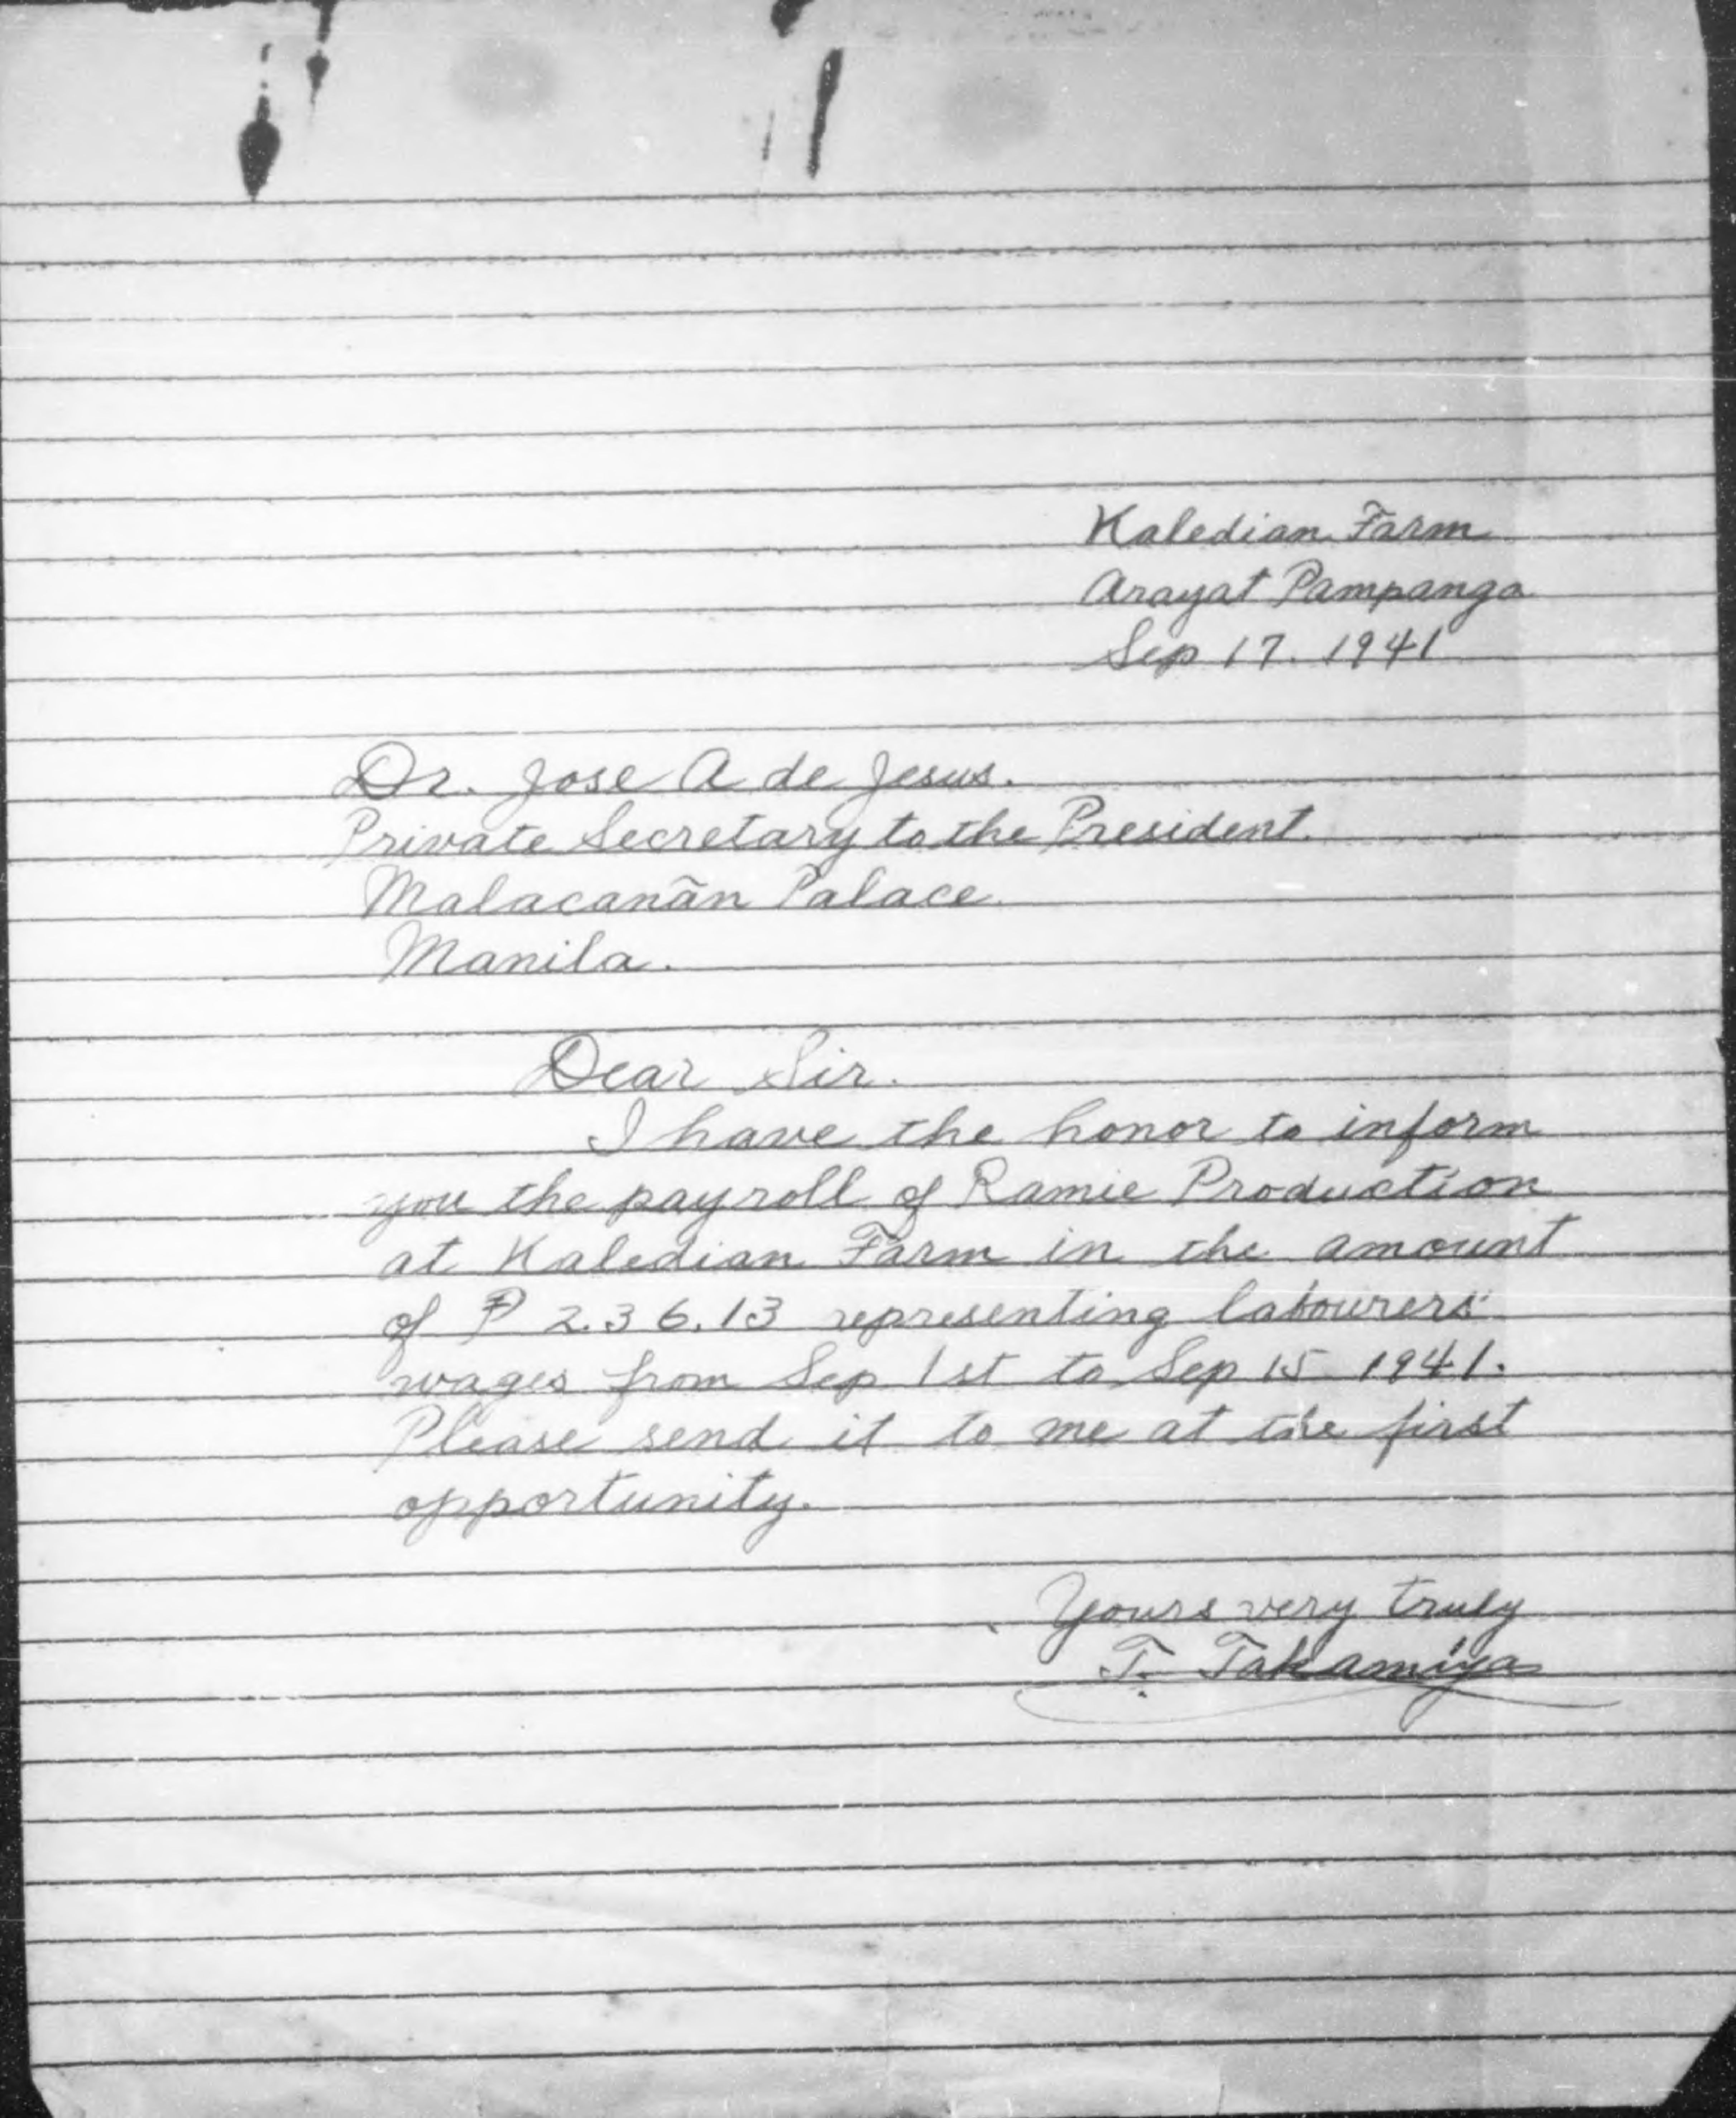 Kaledian Farm
Arayat Pampanga
Sep 17. 1941
Dr. Jose A de Jesus.
Private Secretary to the President.
Malacanãn Palace.
Manila.
Dear Sir.
I have the honor to inform
you the payroll of Ramie Production
at Kaledian Farm in the amount
of ₱ 2.36.13 representing labourers'
wages from Sep 1st to Sep 15 1941.
Please send it to me at the first
opportunity.
Yours very truly
T. Takamiya